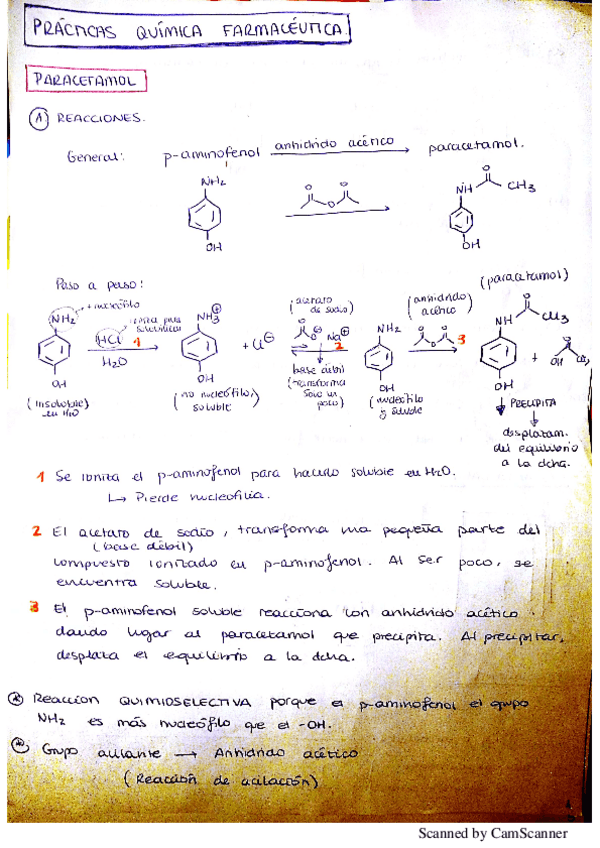 PRÁCTICAS QUÍMICA FARMACÉUTICA.
PARACETAMOL
A. REACCIONES.
General: p-aminofenol anhidrido acético paracetamol.
NH2 OH O O O NH O CH3 OH
Paso a paso:
(paracetamol)
+ nucleófilo
NH2 OH
(Insoluble) en H2O
HCl 1
H2O
NH3 ⊕ OH
(no nucleófilo, soluble)
+ Cl⊖
(acetato de sodio)
O O⊖ Na⊕
2
base débil
(transforma solo un poco)
NH2 OH
(nucleófilo y soluble)
(anhidrido acético)
O O O 3
NH O CH3 OH
+ OH O
PRECIPITA
desplazam. del equilibrio a la dcha.
1 Se ioniza el p-aminofenol para hacerlo soluble en H2O.
↳ Pierde nucleofilia.
2 El acetato de sodio, transforma una pequeña parte del
(base débil)
compuesto ionizado en p-aminofenol. Al ser poco, se
encuentra soluble.
3 El p-aminofenol soluble reacciona con anhidrido acético
dando lugar al paracetamol que precipita. Al precipitar,
desplaza el equilibrio a la dcha.
* Reacción QUIMIOSELECTIVA porque el p-aminofenol el grupo
NH2 es más nucleófilo que el -OH.
* Grupo acilante → Anhidrido acético
(Reacción de acilación)
Scanned by CamScanner